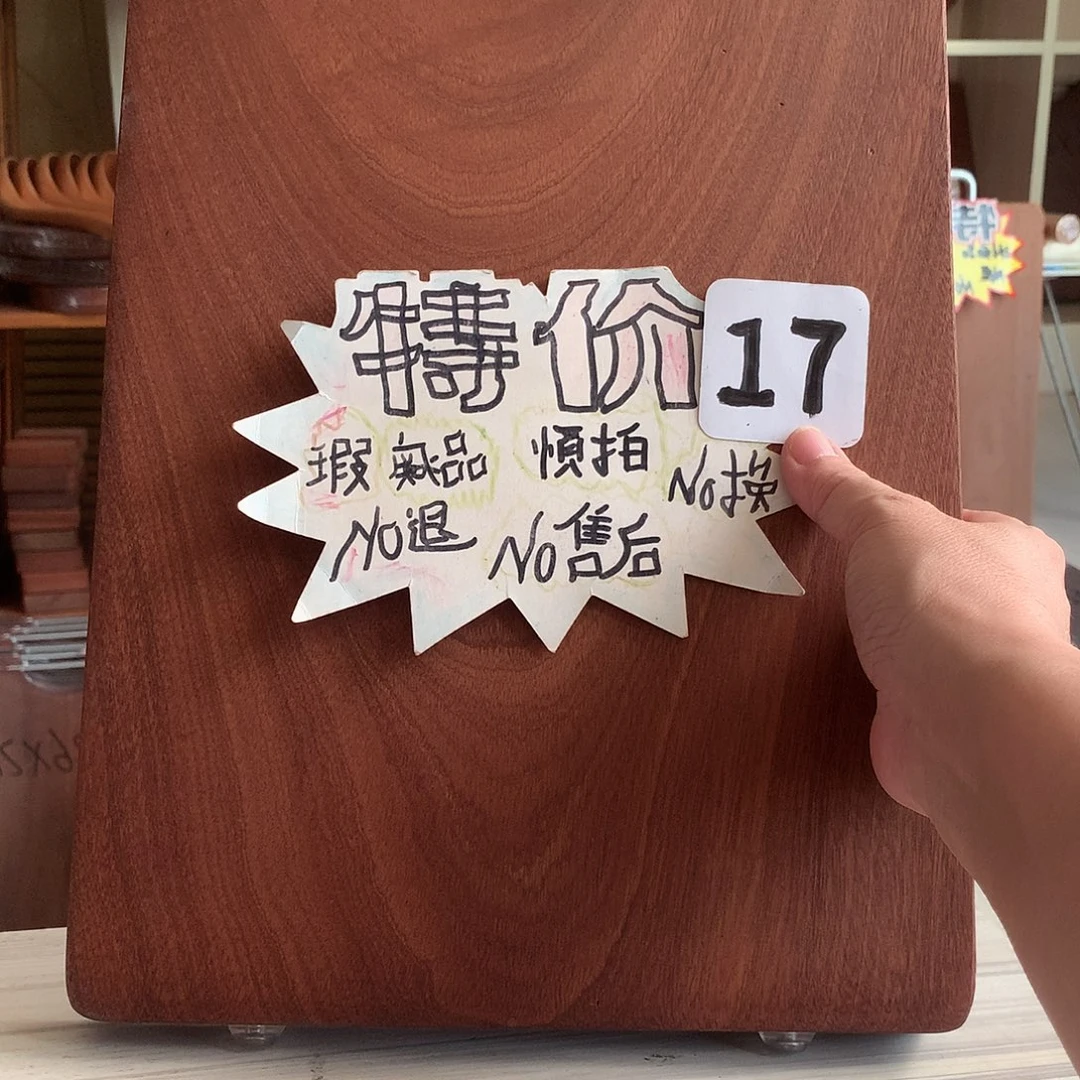 特价 17
瑕疵品 慎拍 No换
No退 No售后
特